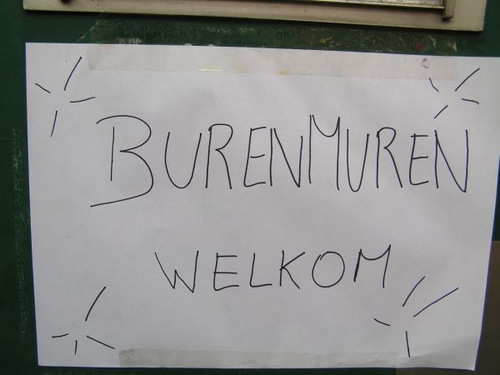 BURENMUREN
WELKOM